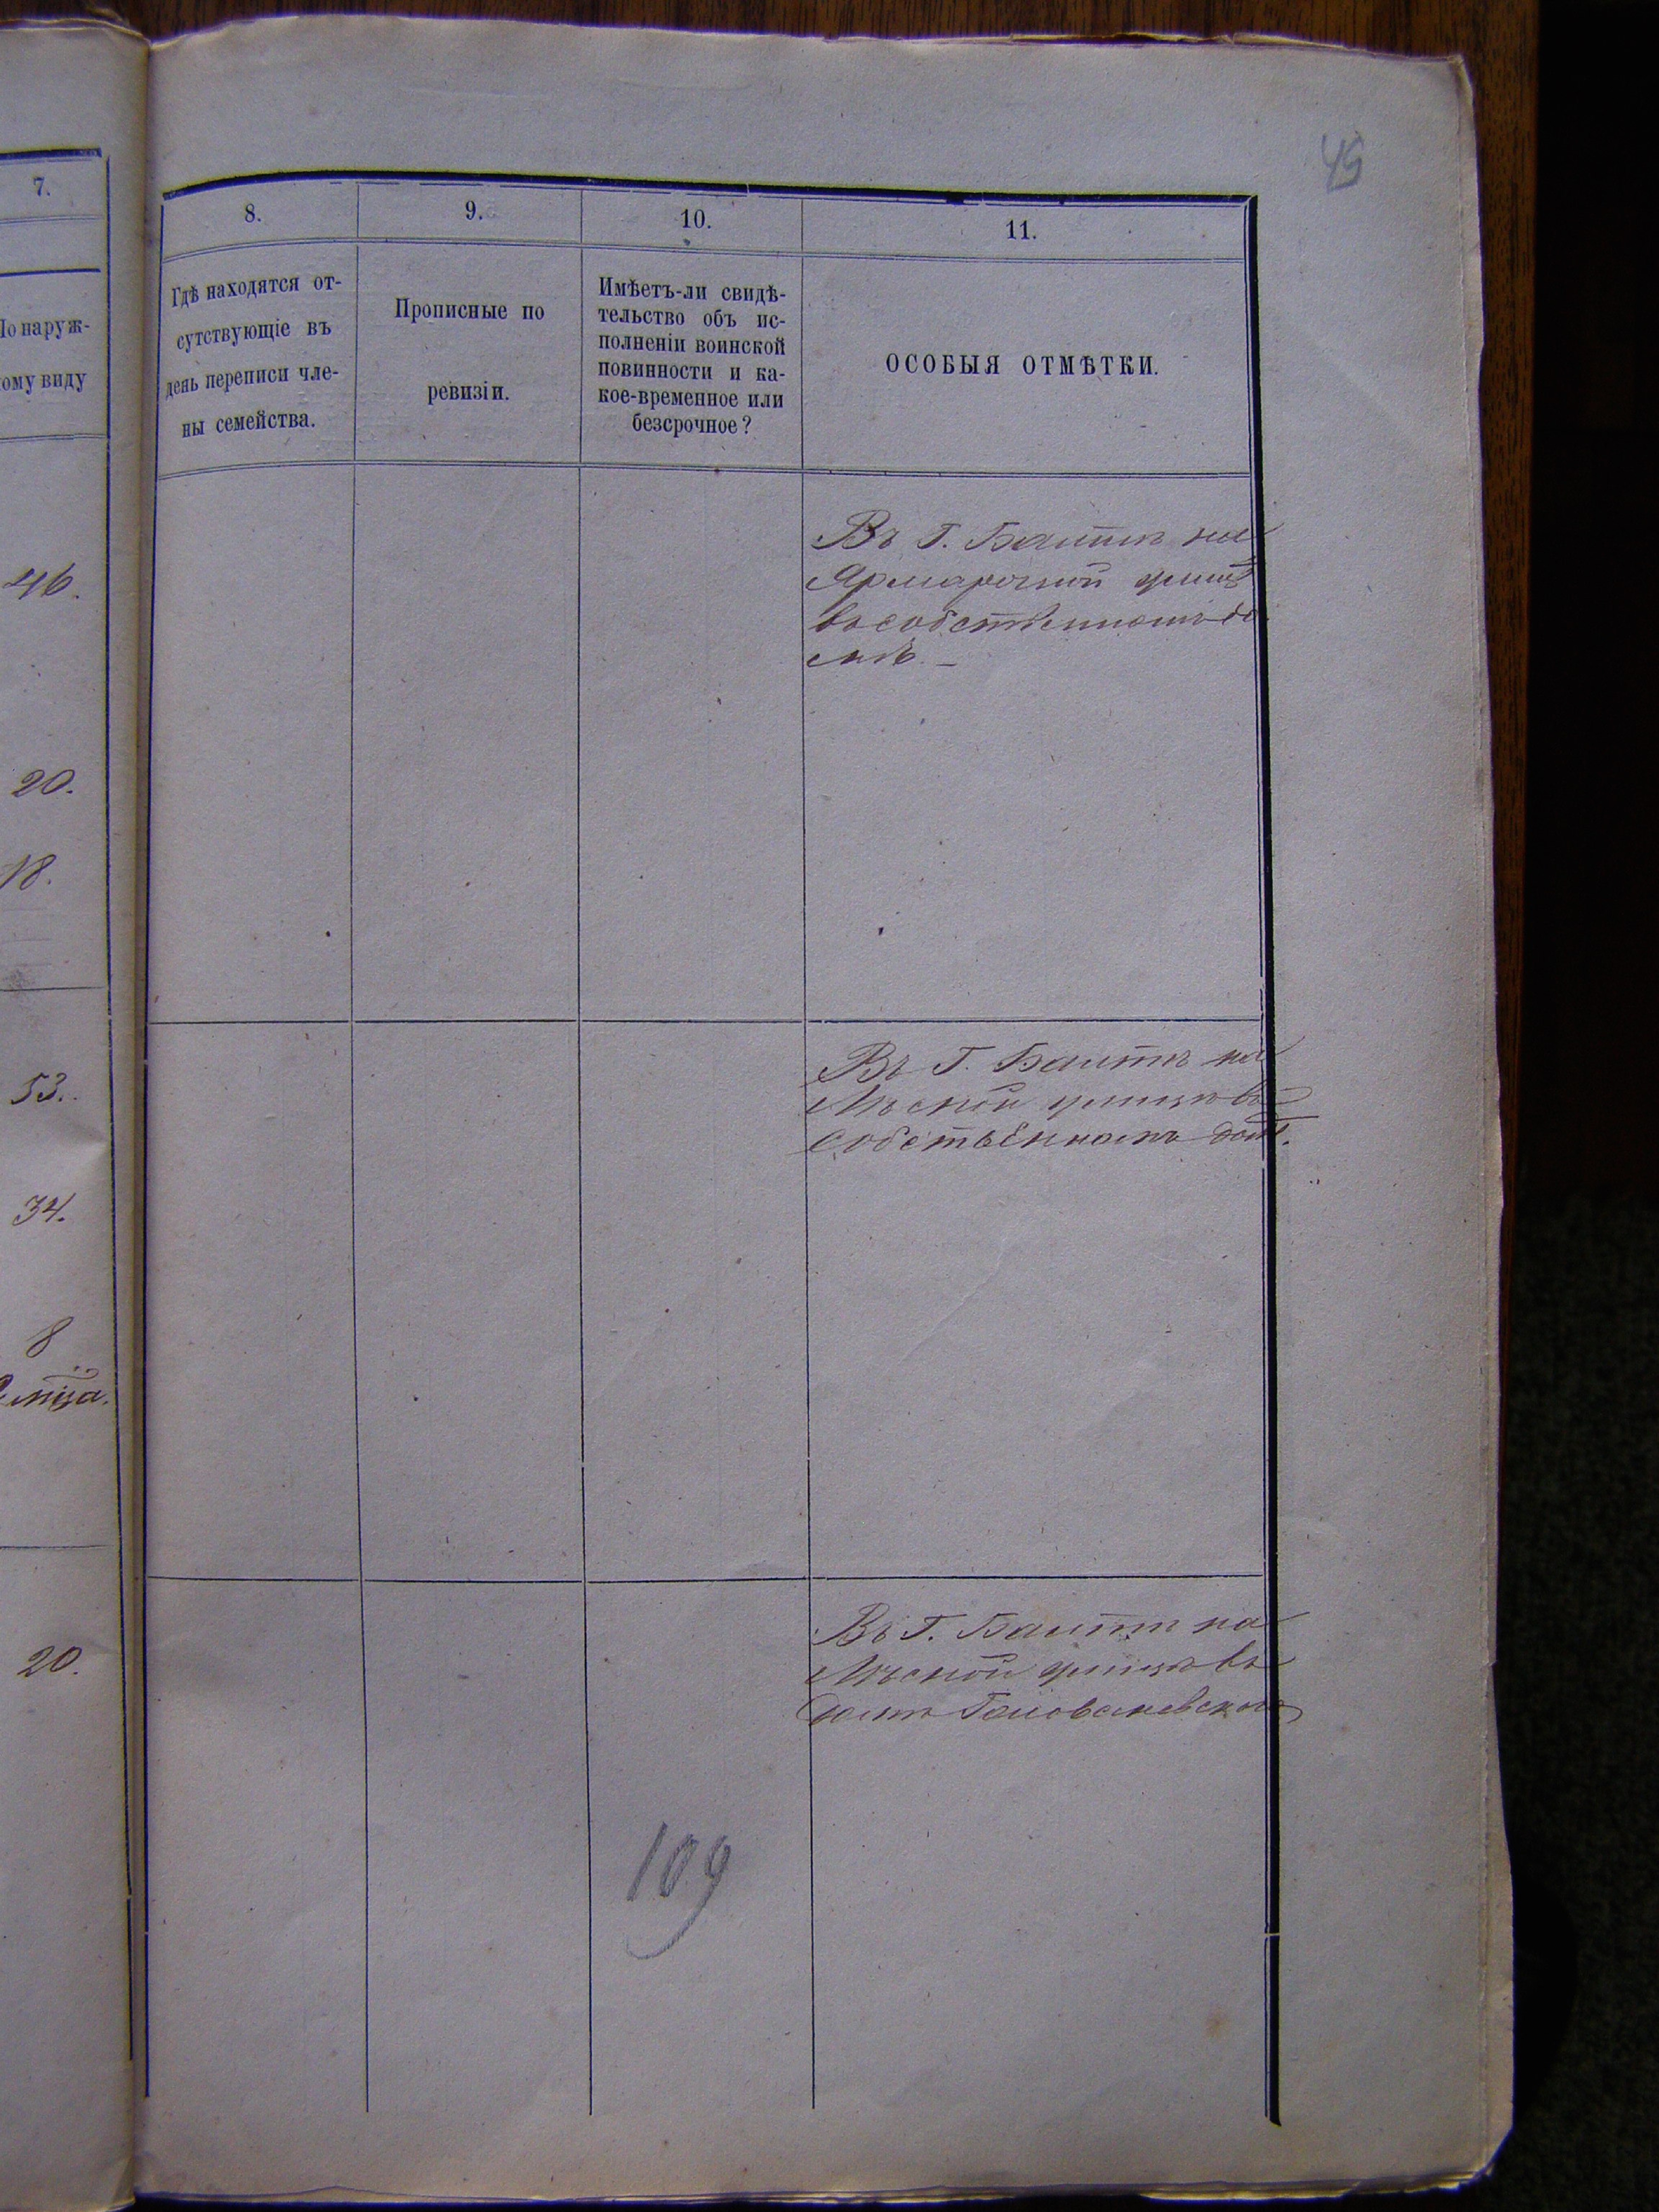 45
7.
8.
9.
10.
11.
По наруж-
ому виду
Гдѣ находятся от-
сутствующіе въ
день переписи чле-
ны семейства.
Прописные по
ревизіи.
Имѣетъ-ли свидѣ-
тельство объ ис-
полненіи воинской
повинности и ка-
кое-временное или
безсрочное?
ОСОБЫЯ ОТМѢТКИ.
46.
20.
18.
Въ Г. Балтѣ на
Ярмарочной улицѣ
въ собственномъ до
мѣ. —
53.
34.
8
Въ Г. Балтѣ на
улицѣ въ
собственномъ домѣ.
20.
Въ Г. Балтѣ на
улицѣ въ
домѣ
109